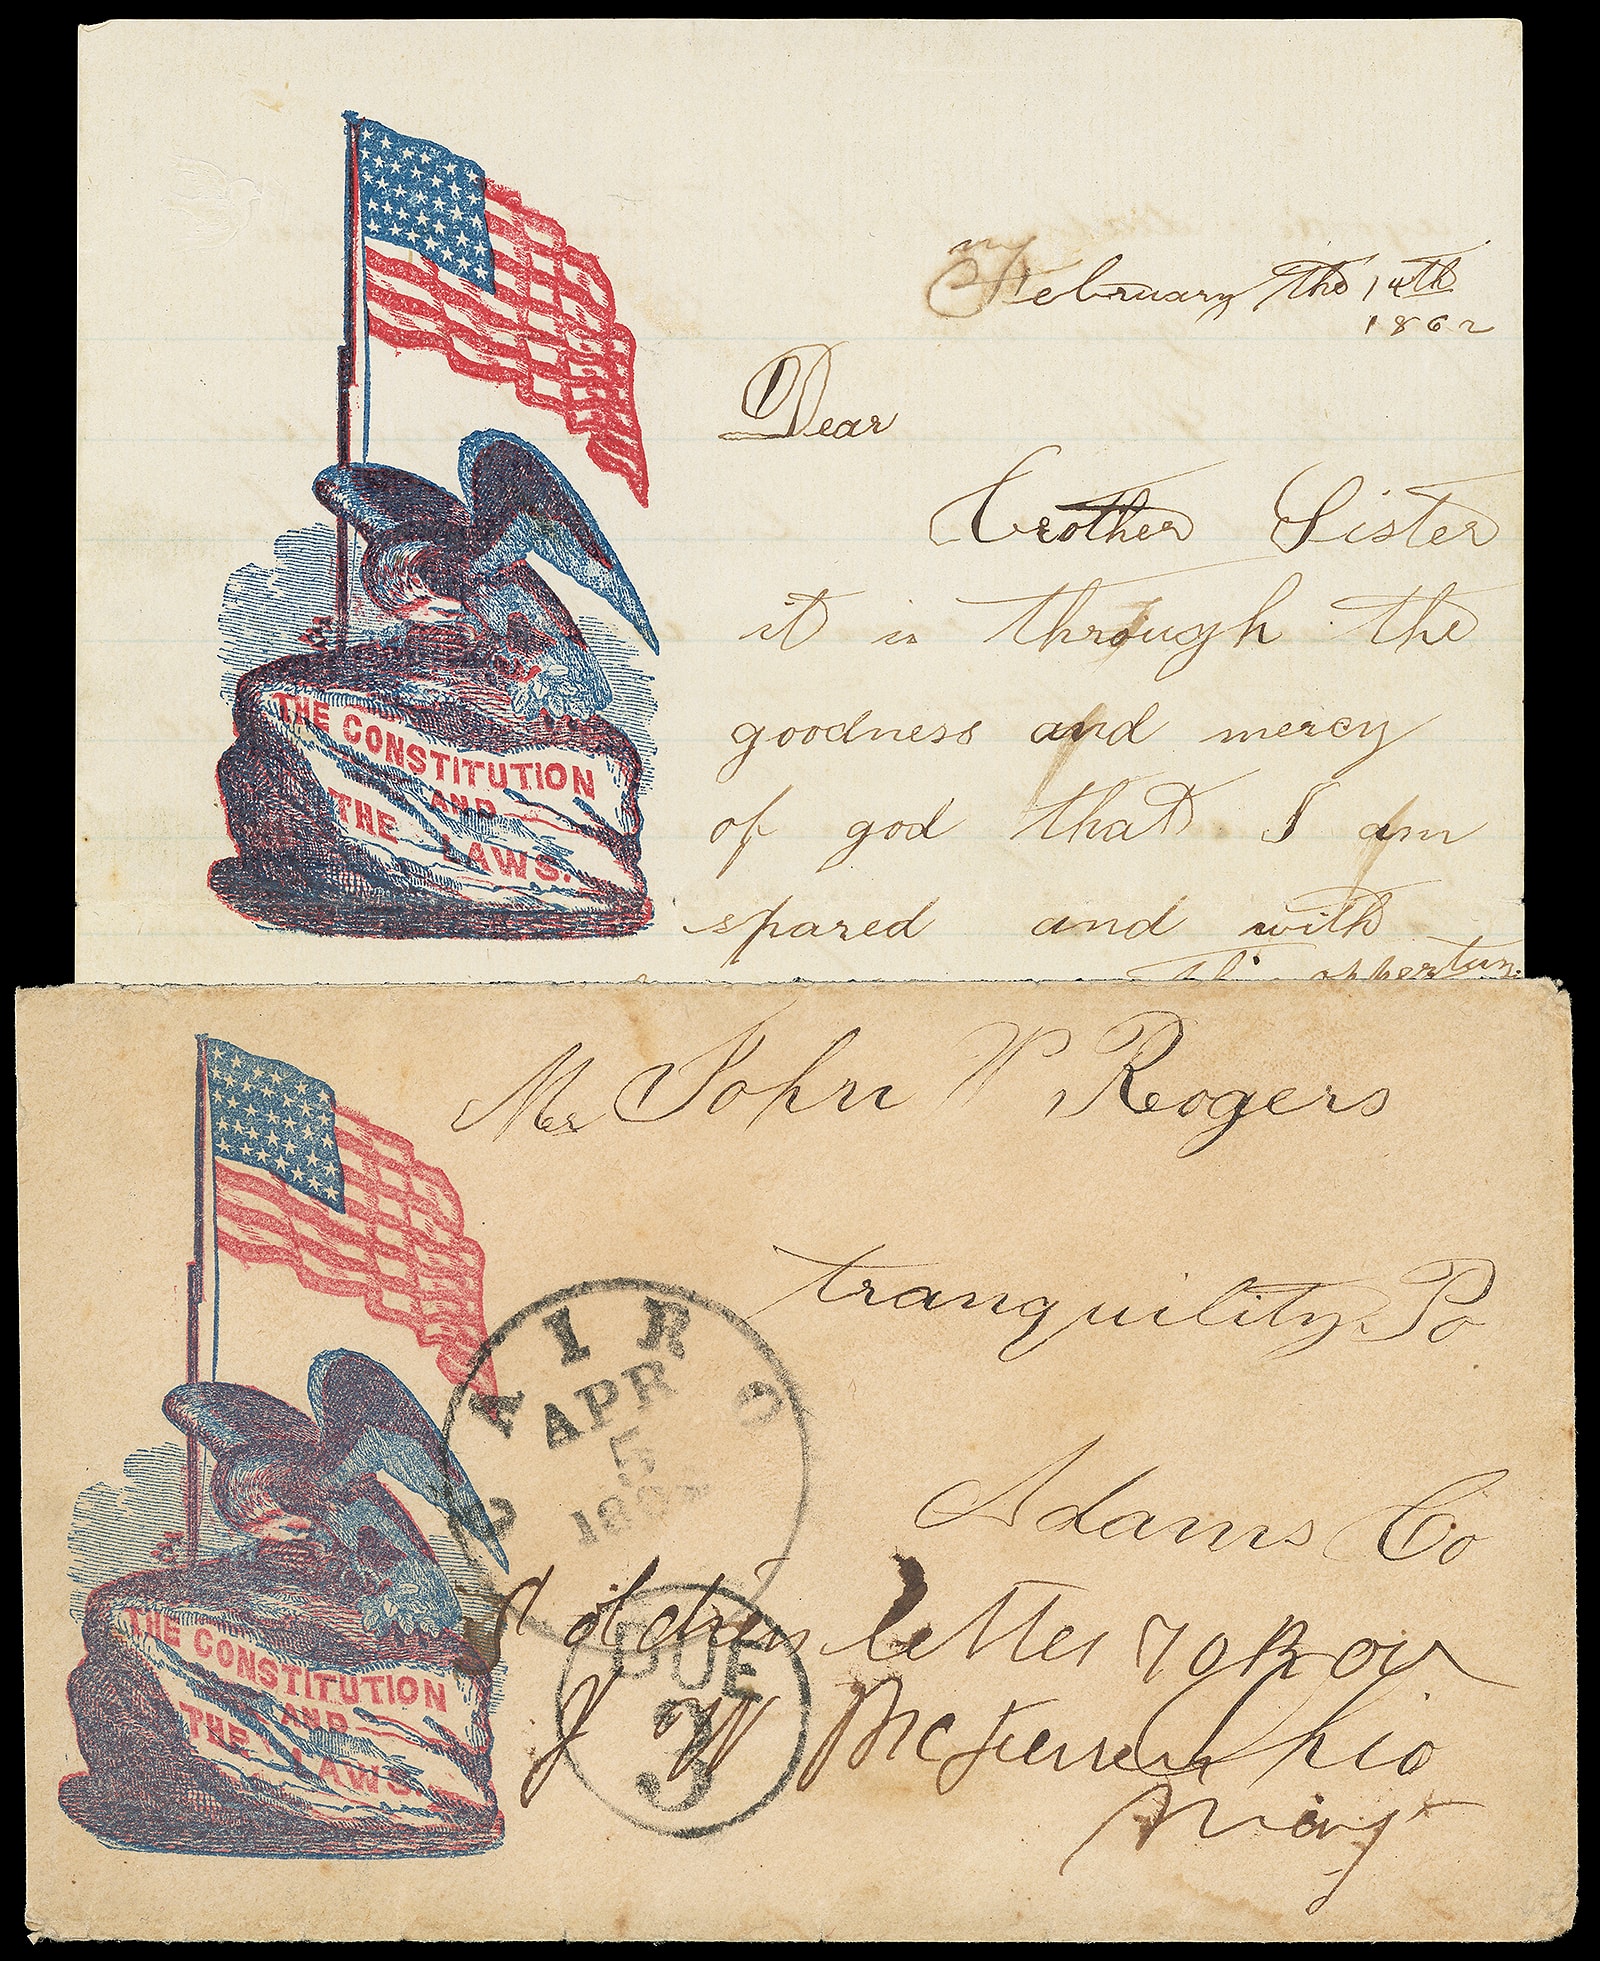 February the 14th
1862
Dear
Brother Sister
it is through the
goodness and mercy
of god that I am
spared and with
opportun
THE CONSTITUTION
AND
THE LAWS.
Mr John W Rogers
tranquility Po
Adams Co
Ohio
CAIRO
APR
5
DUE
3
letter 70 R OV
J W Mc
Maj
THE CONSTITUTION
AND
THE LAWS.